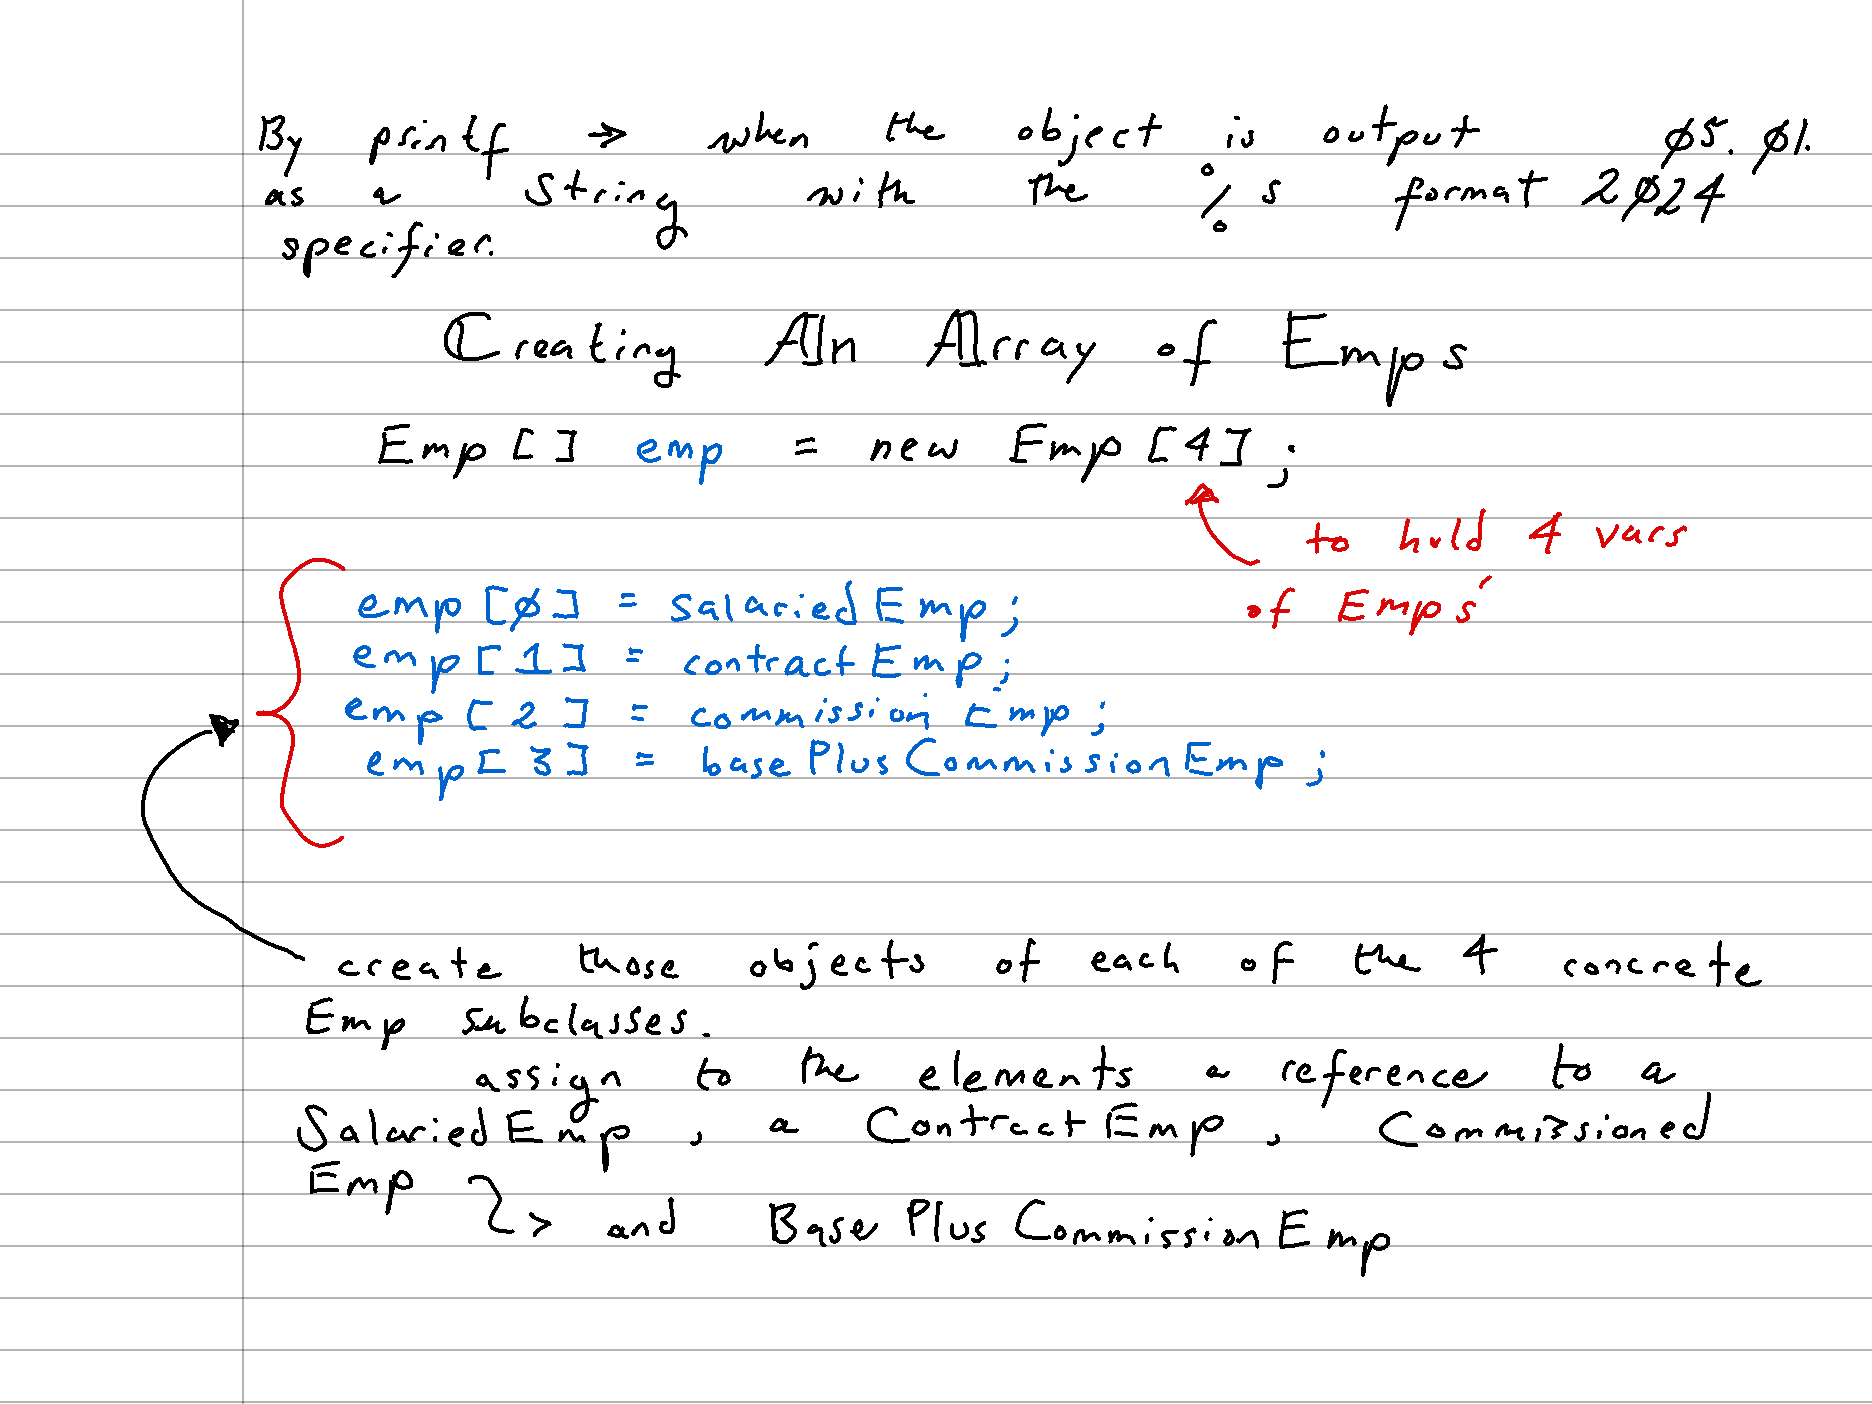 By printf → when the object is output 05.01.
as a String with the %s format 2024
specifier.
Creating An Array of Emps
Emp[] emp = new Emp[4];
to hold 4 vars
of Emps'
emp[0] = salariedEmp;
emp[1] = contractEmp;
emp[2] = commissionEmp;
emp[3] = basePlusCommissionEmp;
create those objects of each of the 4 concrete
Emp subclasses.
assign to the elements a reference to a
SalariedEmp, a ContractEmp, Commissioned
Emp
> and BasePlusCommissionEmp